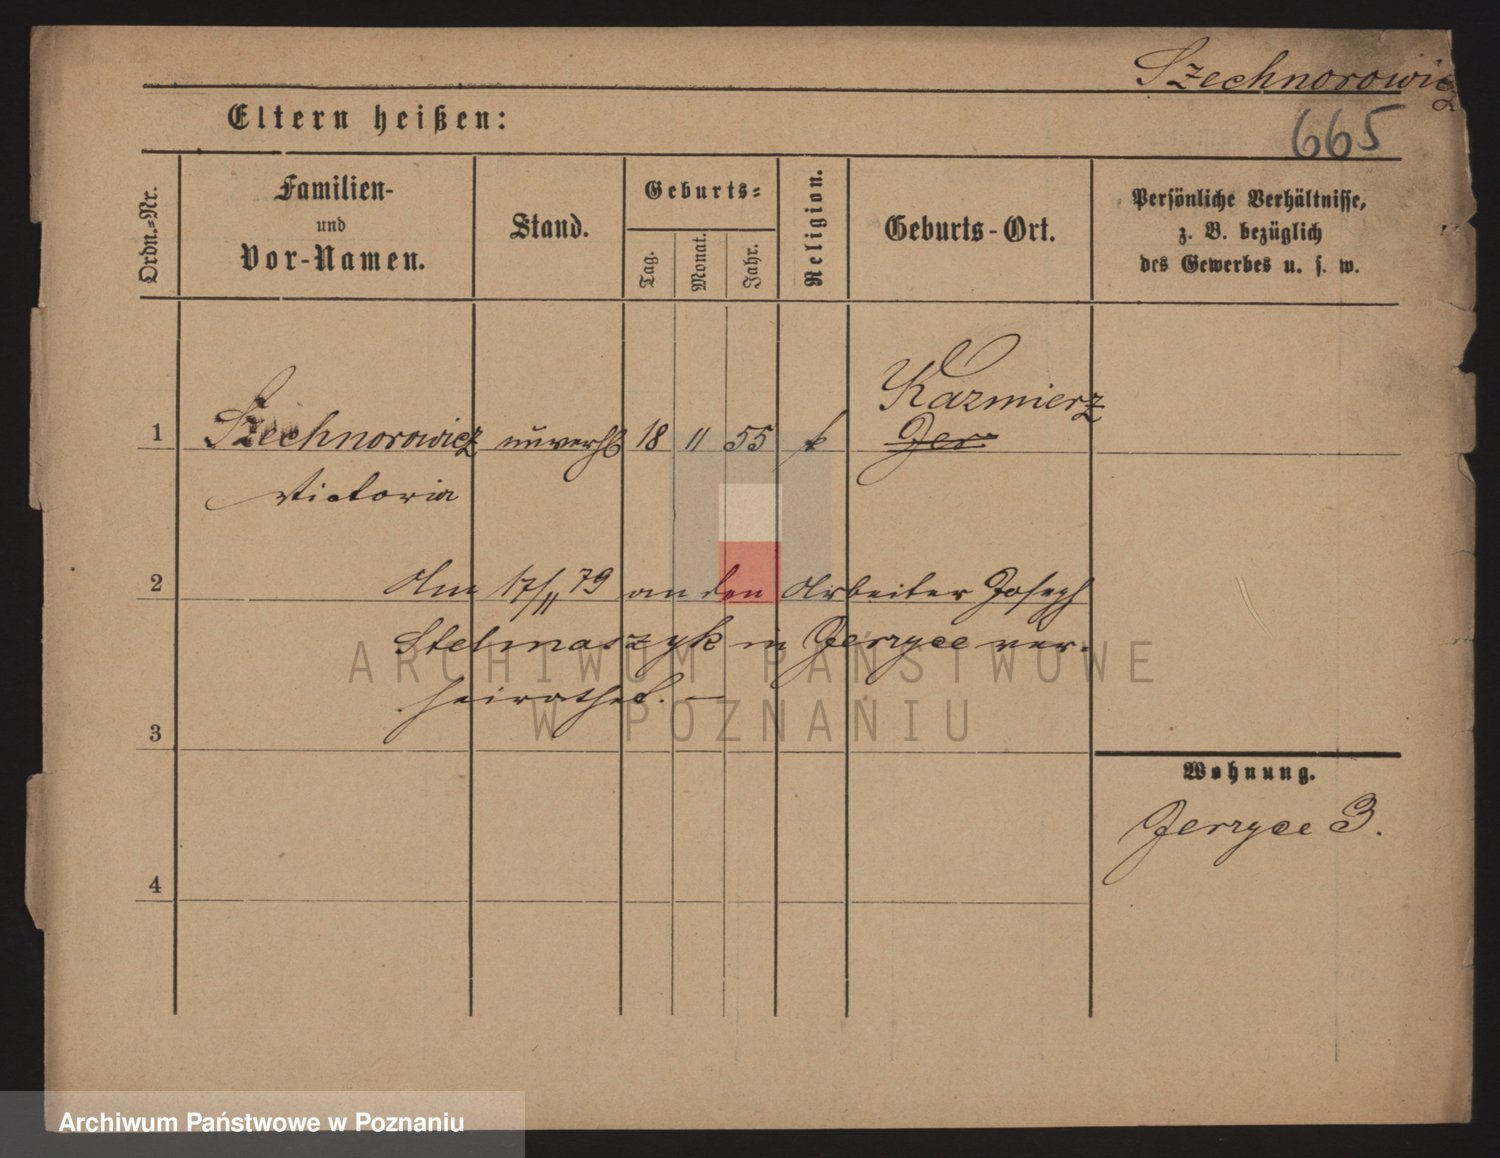 Szechnorowicz
665
Eltern heißen:
Ordn.-Nr.
Familien-
und
Vor-Namen.
Stand.
Geburts-
Tag.
Monat.
Jahr.
Religion.
Geburts-Ort.
Persönliche Verhältnisse,
z. B. bezüglich
des Gewerbes u. s. w.
Kazmierz
1 Szechnorowicz unverh 18 11 55 k Jer
Victoria
2 Am 17/11 79 an den Arbeiter Joseph
Stelmaszyk in Jerzyce ver-
heirathet. —
3
Wohnung.
Jerzyce 3.
4
ARCHIWUM PAŃSTWOWE
W POZNANIU
Archiwum Państwowe w Poznaniu